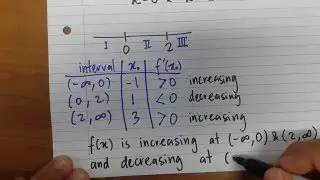 I 0 II 2 III
interval x₀ f'(x₀)
(-∞,0) -1 >0 increasing
(0,2) 1 <0 decreasing
(2,∞) 3 >0 increasing
f(x) is increasing at (-∞,0) & (2,∞)
and decreasing at (